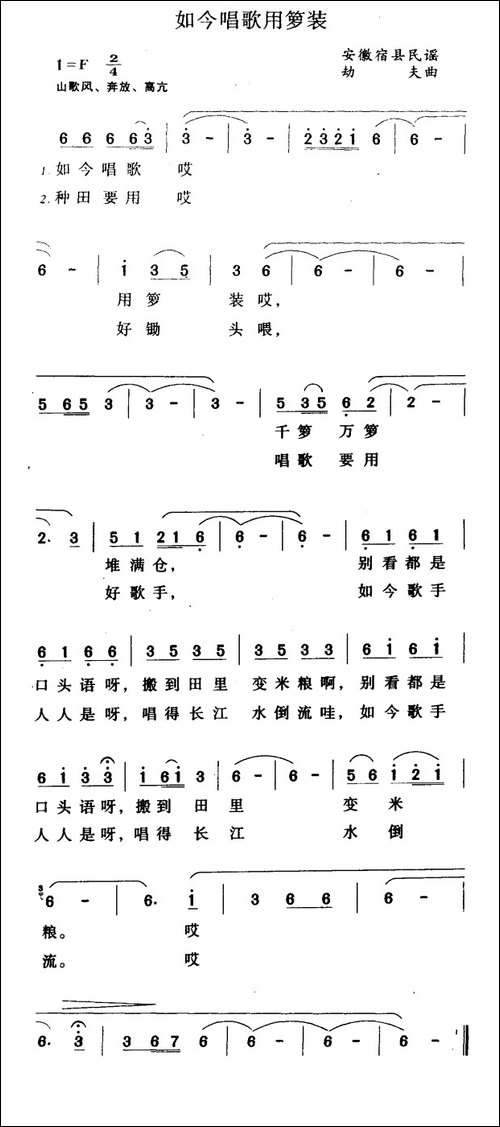 如今唱歌用箩装
1=F 2/4
安徽宿县民谣
劫夫曲
山歌风、奔放、高亢
6 6 6 6 3 | 3 - | 3 - | 2 3 2 1 | 6 | 6 -
1. 如今唱歌 哎
2. 种田要用 哎
6 - | i 3 5 | 3 6 | 6 - | 6 -
用箩 装哎，
好锄 头喂，
5 65 3 | 3 - | 3 - | 5 35 6 2 | 2 -
千箩 万箩
唱歌 要用
2. 3 | 5 1 216 | 6 - | 6 - | 6 1 6 1
堆满仓， 别看都是
好歌手， 如今歌手
6 1 6 6 | 3 5 3 5 | 3 5 3 5 | 6 i 6 i
口头语呀，搬到田里 变米粮啊，别看都是
人人是呀，唱得长江 水倒流哇，如今歌手
6 i 3 3 | i 6i 3 | 6 - | 6 - | 5 6 i 2i
口头语呀，搬到 田里 变 米
人人是呀，唱得 长江 水 倒
3 6 - | 6. i | 3 6 6 | 6 -
粮。 哎
流。 哎
6. 3 | 3 6 7 6 | 6 - | 6 - | 6 -